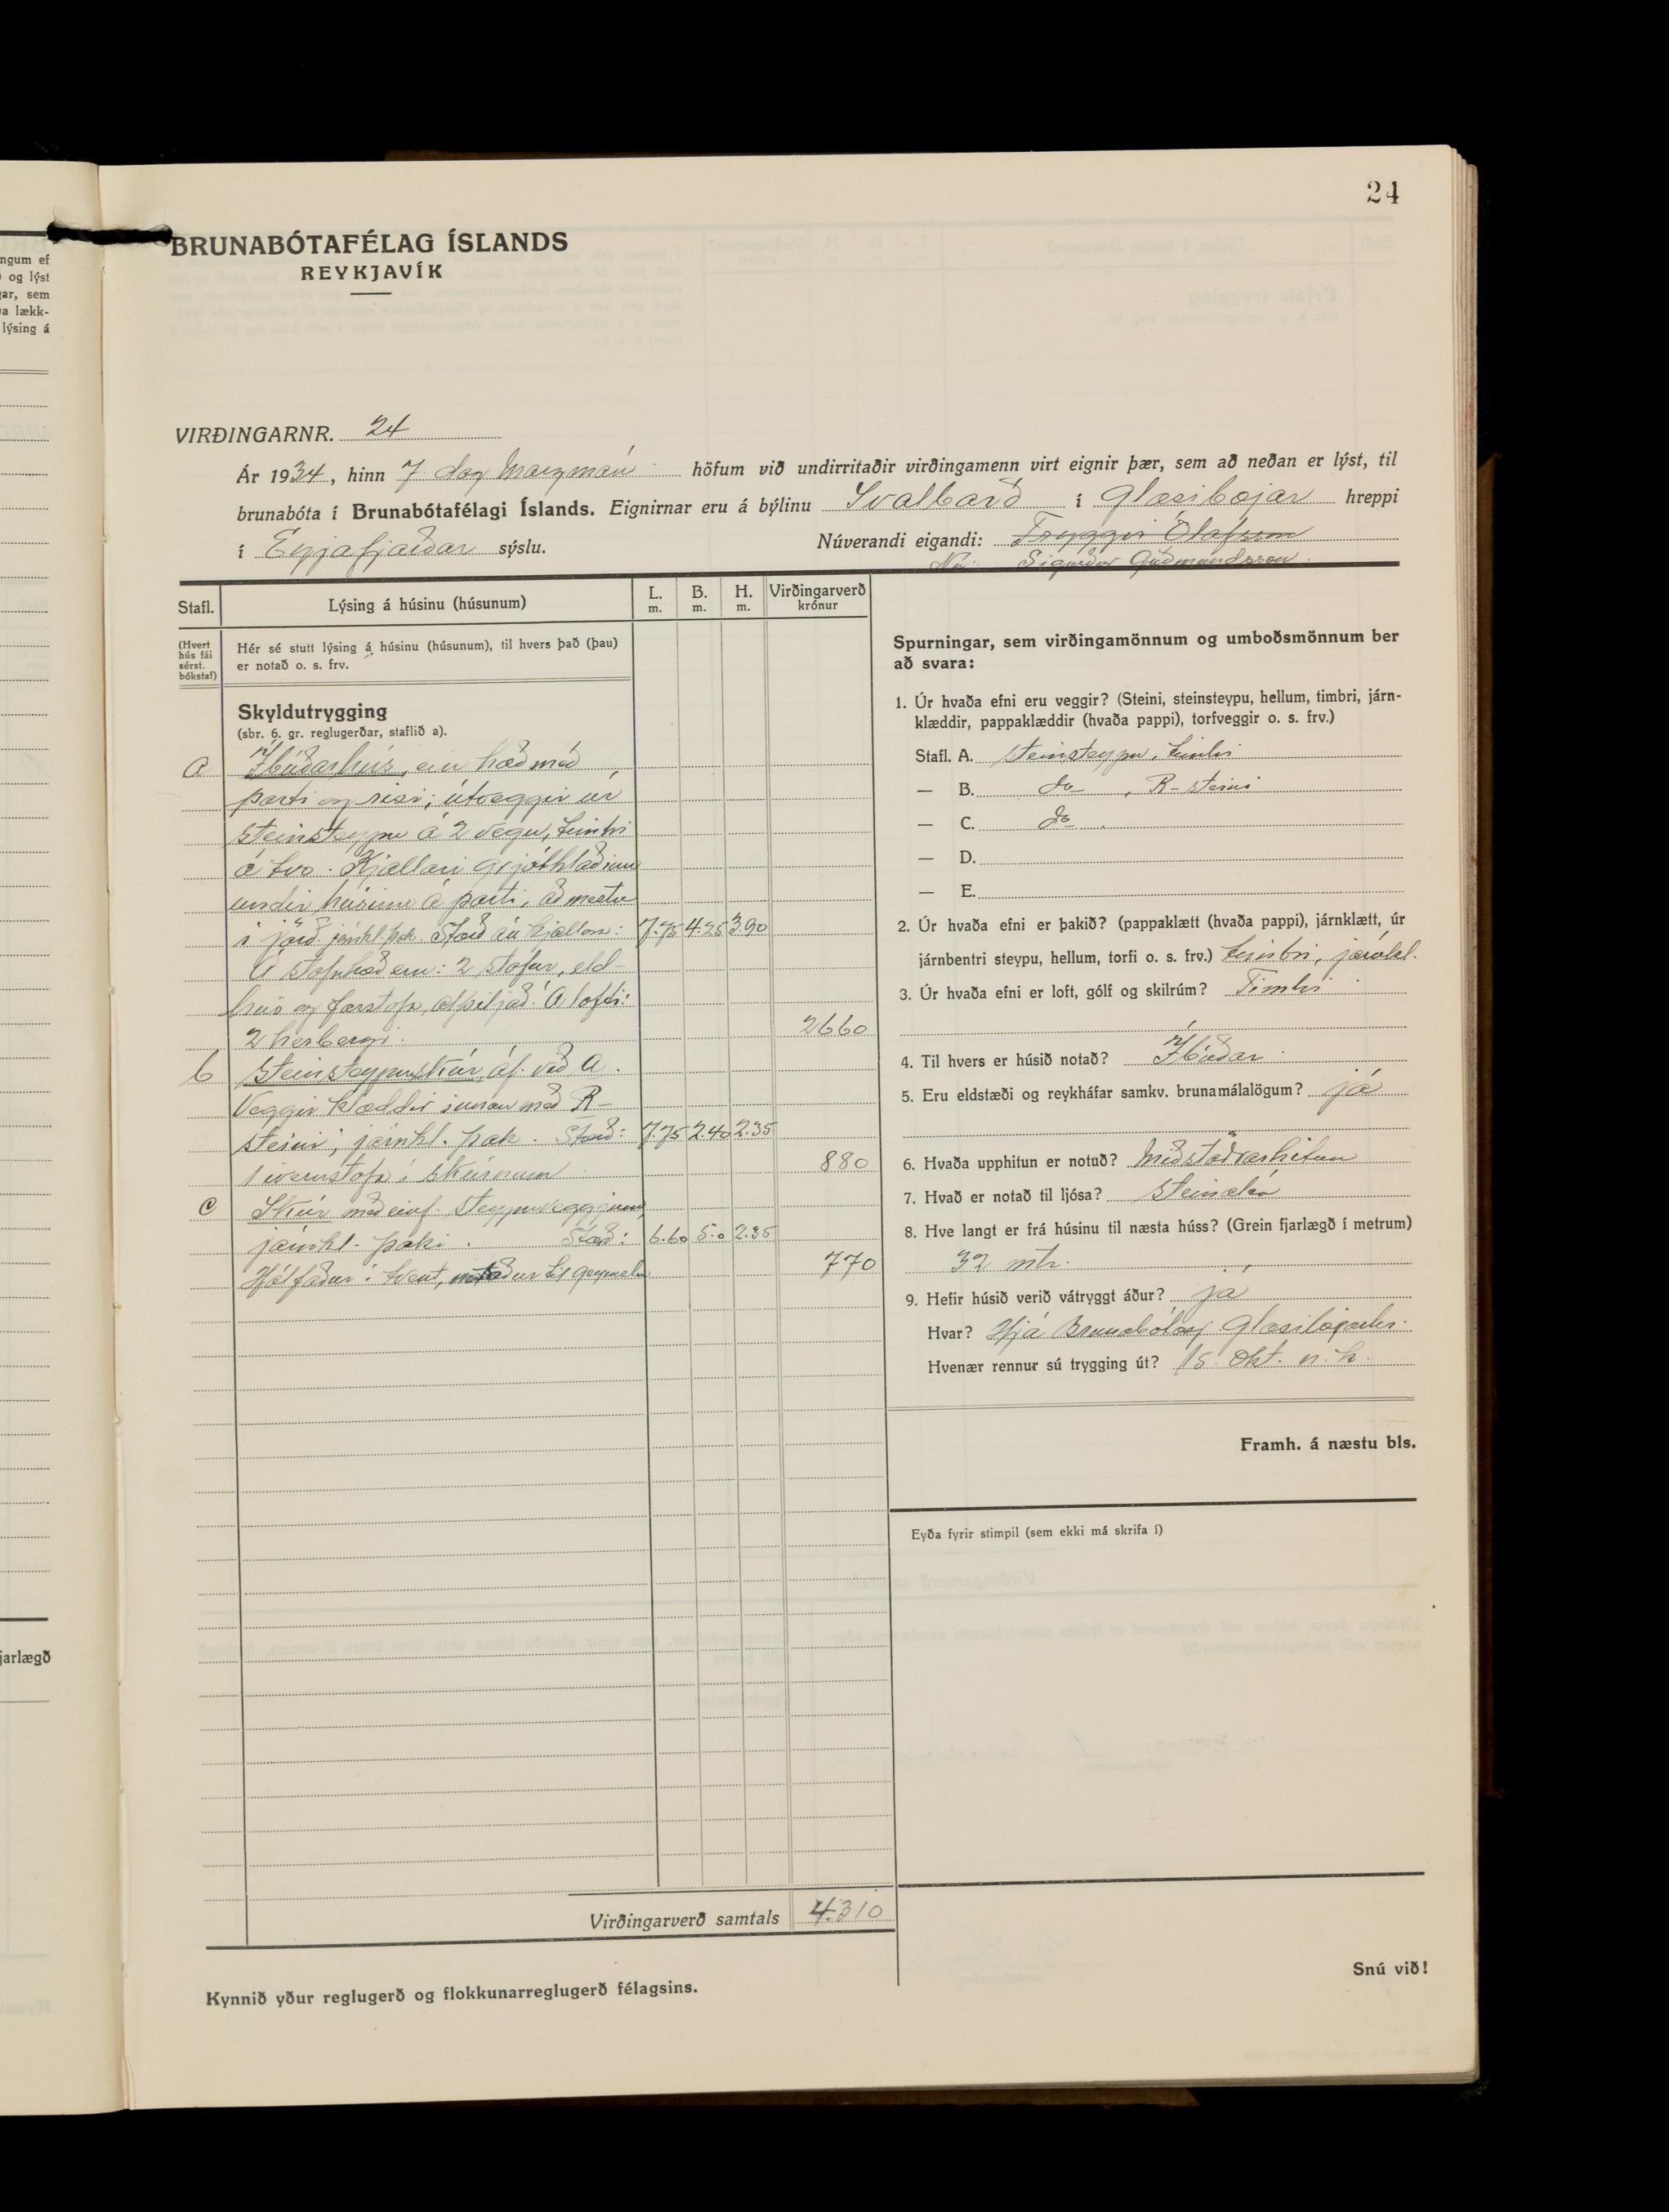 24
BRUNABÓTAFÉLAG ÍSLANDS
REYKJAVÍK
VIRÐINGARNR. 24
Ár 1934, hinn 7. dag marzmán höfum við undirritaðir virðingamenn virt eignir þær, sem að neðan er lýst, til
brunabóta í Brunabótafélagi Íslands. Eignirnar eru á býlinu Svalbarð í Glæsibæjar hreppi
í Eyjafjarðar sýslu. Núverandi eigandi: Tryggvi Ólafsson
Nú: Sigurður Guðmundsson
Stafl.
Lýsing á húsinu (húsunum)
L.
m.
B.
m.
H.
m.
Virðingarverð
krónur
(Hvert
hús fái
sérst.
bókstaf)
Hér sé stutt lýsing á húsinu (húsunum), til hvers það (þau)
er notað o. s. frv.
Skyldutrygging
(sbr. 6. gr. reglugerðar, staflið a).
a Íbúðarhús, ein hæð með
parti og risi; útveggir úr
steinsteypu á 2 vegu, timbri
á tvo. Kjallari grjóthlaðinn
undir húsinu á parti, að mestu
í jörð. járnkl. þak. Stærð án kjallara: 7.75 4.25 3.90
Á stofuhæð eru: 2 stofur, eld-
hús og forstofa, alþiljað. Á lofti:
2 herbergi. 2660
b Steinsteypuskúr, áf. við A.
Veggir klæddir innan með R-
steini; járnkl. þak. Stærð: 7.75 2.40 2.35
1 íverustofa í skúrnum 880
c Skúr með einf. steypuveggjum,
járnkl. þaki. Stærð: 6.60 5.0 2.35
Hólfaður í tvent, notaður til geymslu 770
Virðingarverð samtals 4310
Kynnið yður reglugerð og flokkunarreglugerð félagsins.
Spurningar, sem virðingamönnum og umboðsmönnum ber
að svara:
1. Úr hvaða efni eru veggir? (Steini, steinsteypu, hellum, timbri, járn-
klæddir, pappaklæddir (hvaða pappi), torfveggir o. s. frv.)
Stafl. A. steinsteypu, timbri
— B. do , R-steini
— C. do .
— D.
— E.
2. Úr hvaða efni er þakið? (pappaklætt (hvaða pappi), járnklætt, úr
járnbentri steypu, hellum, torfi o. s. frv.) timbri, járnkl.
3. Úr hvaða efni er loft, gólf og skilrúm? Timbri
4. Til hvers er húsið notað? Íbúðar
5. Eru eldstæði og reykháfar samkv. brunamálalögum? já
6. Hvaða upphitun er notuð? Miðstöðvarhitun
7. Hvað er notað til ljósa? steinolía
8. Hve langt er frá húsinu til næsta húss? (Grein fjarlægð í metrum)
32 mtr.
9. Hefir húsið verið vátryggt áður? já
Hvar? Hjá Brunabótasj. Glæsibæjarhr.
Hvenær rennur sú trygging út? 15. okt. n. k.
Framh. á næstu bls.
Eyða fyrir stimpil (sem ekki má skrifa í)
Snú við!
ngum ef
og lýst
gar, sem
a lækk-
lýsing á
jarlægð